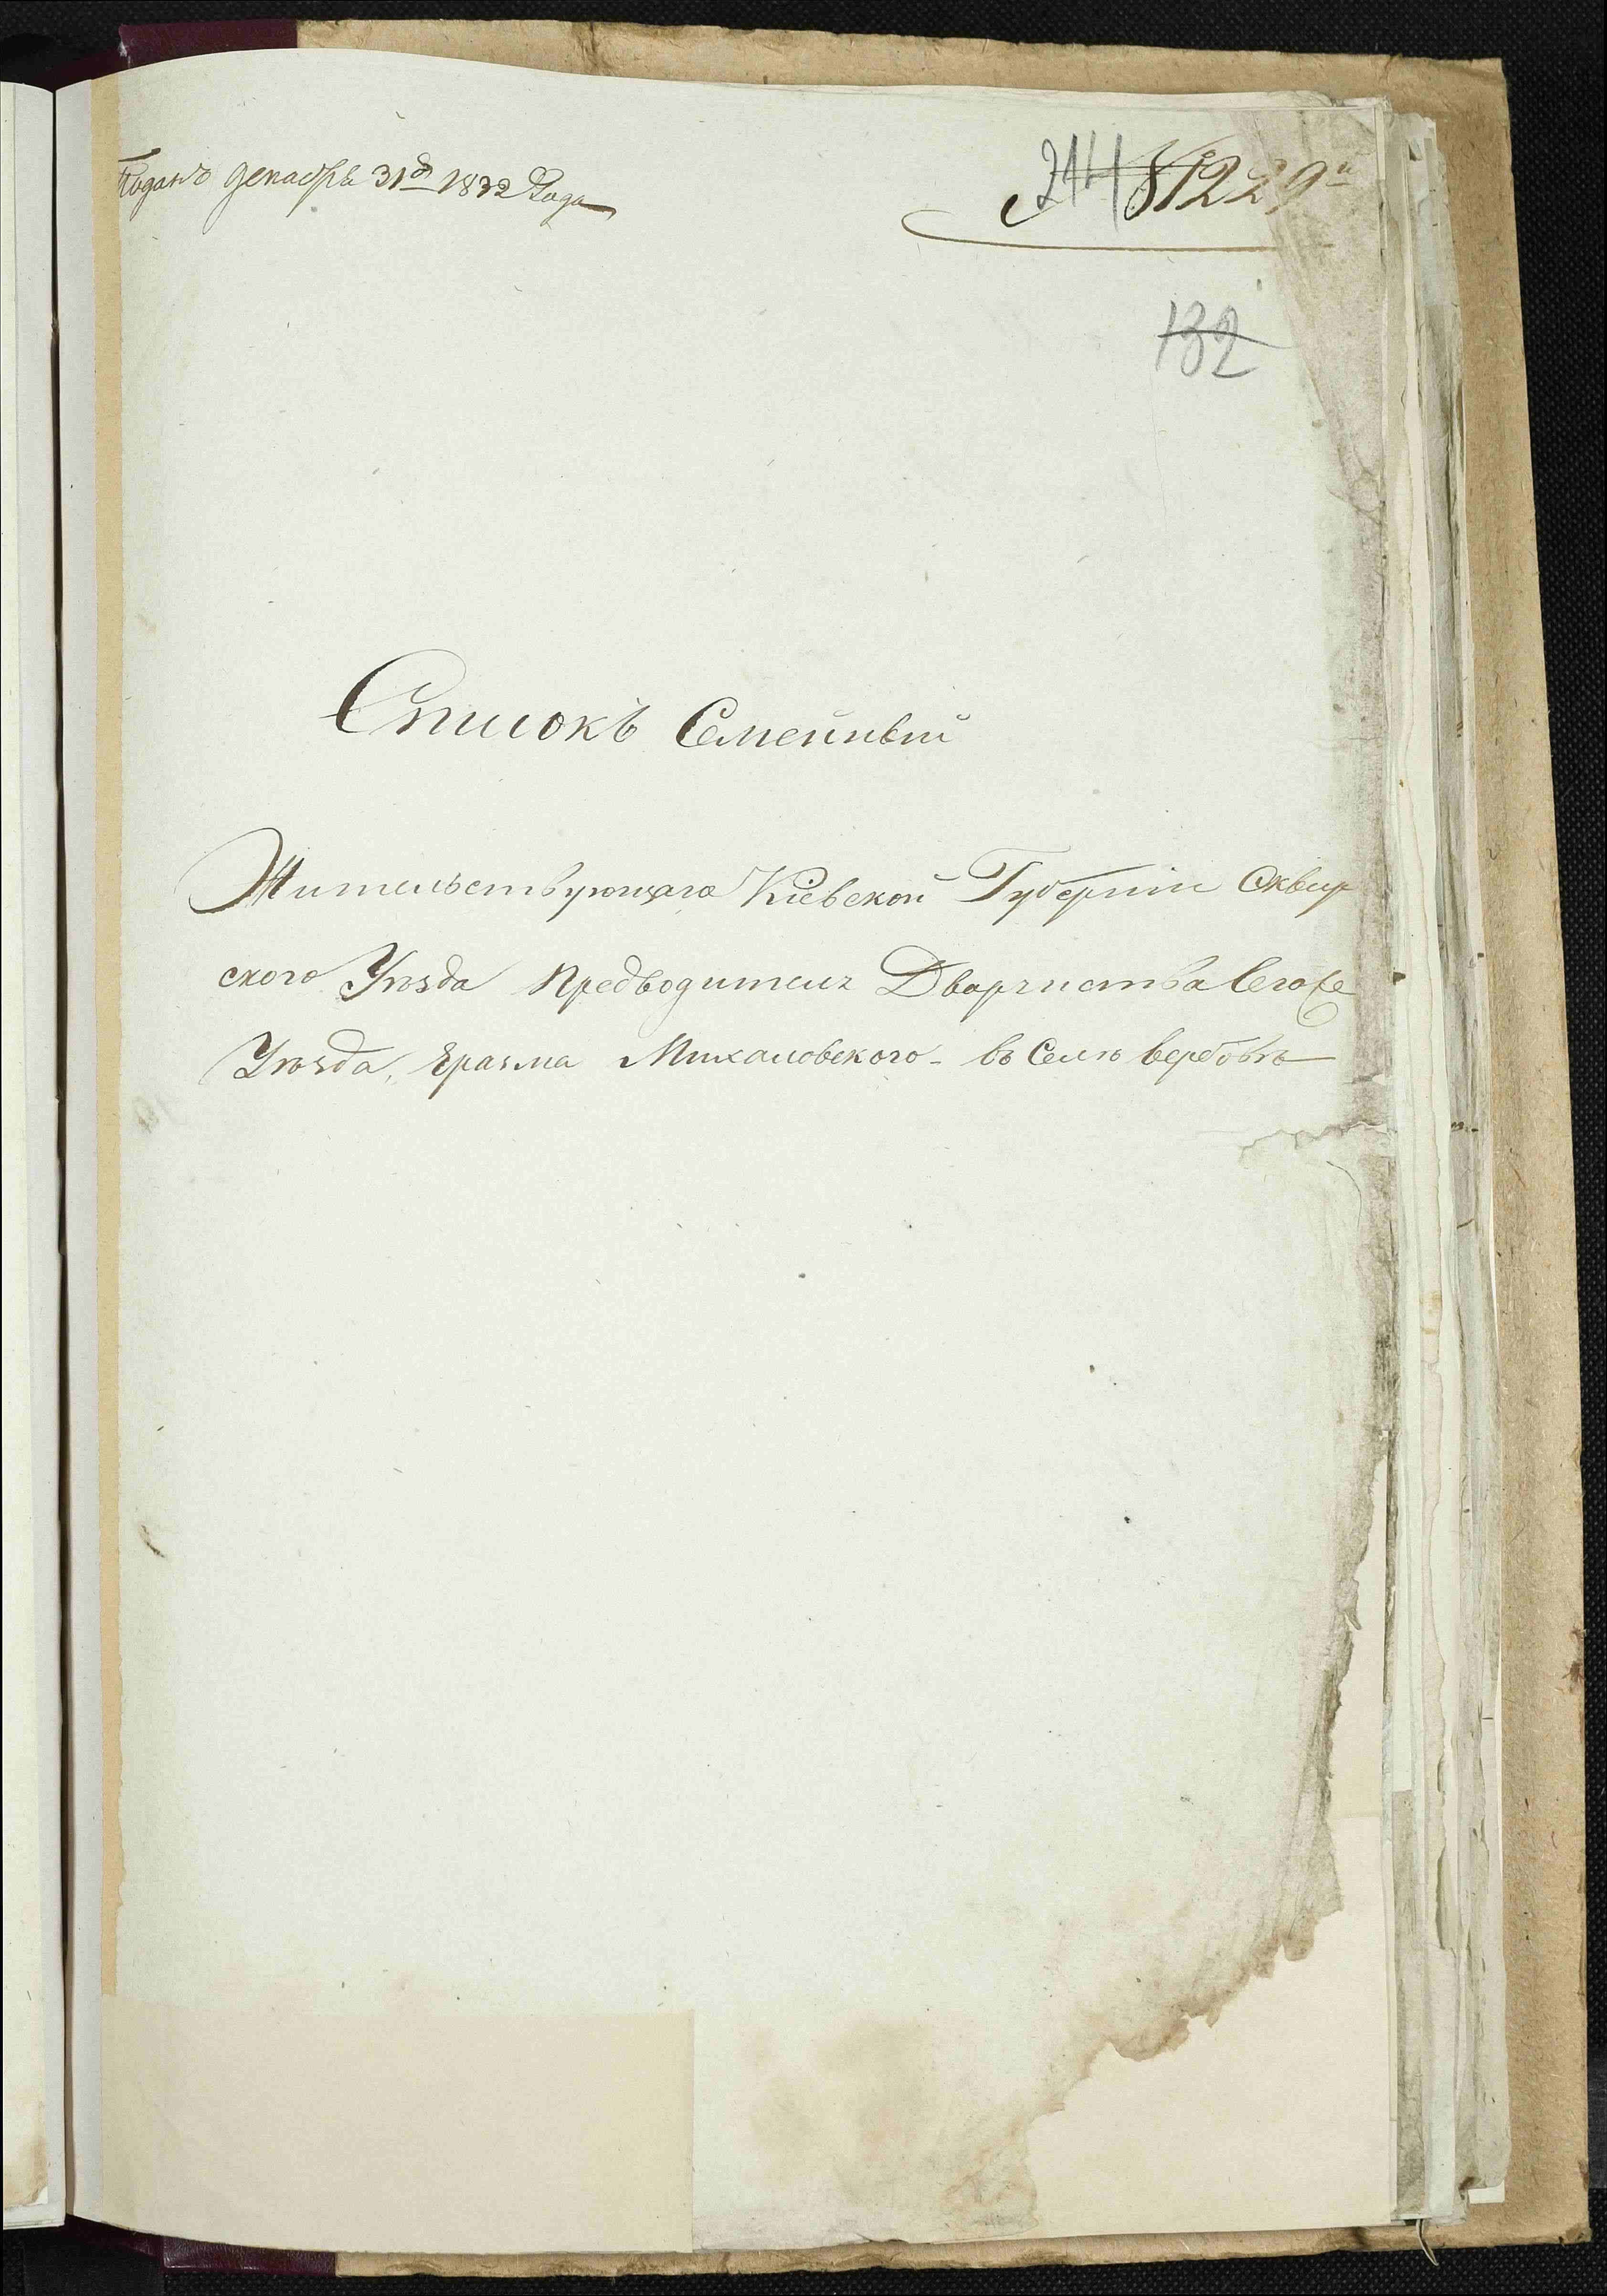 Поданъ декабря 31д 1832 Года
244 1229й
132
Списокъ Семейный
Жительствующаго Кіевской Губерніи Сквир
ского Уѣзда Предводителя Дворянства Сего же
Уѣзда, Еразма Михаловского - въ Селѣ вербовѣ